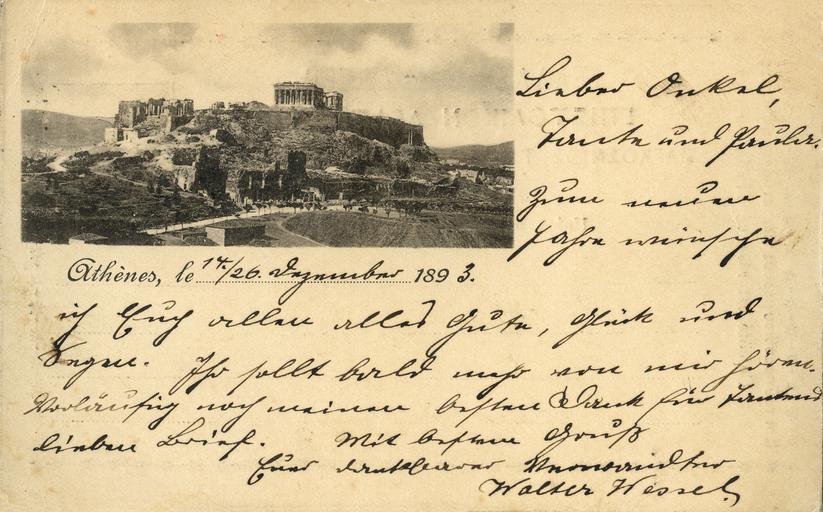 Lieber Onkel,
Tante und Paula.
Zum neuen
Jahre wünsche
Athènes, le 14./26. Dezember 1893.
ich Euch allen alles Gute, Glück und
Segen. Ihr sollt bald mehr von mir hören.
Vorläufig noch meinen besten Dank für Tantens
lieben Brief. Mit bestem Gruß
Euer dankbarer Verwandter
Walter Wessel.